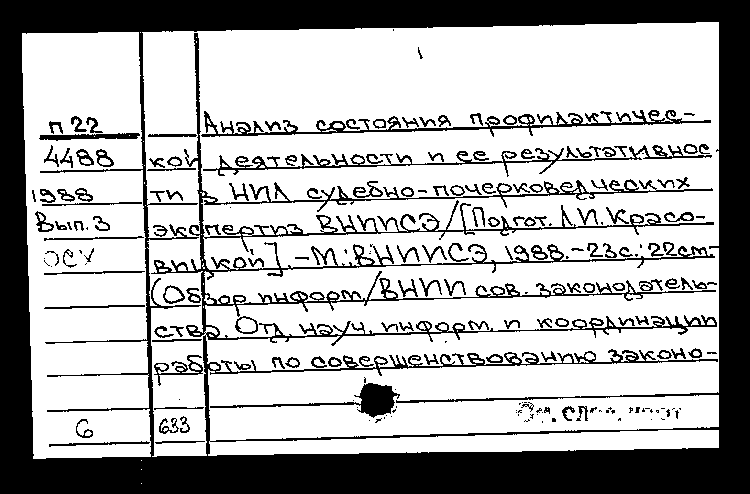 п 22 Анализ состояния профилактичес-
4488 кой деятельности и ее результативнос-
1988 ти в НИЛ судебно-почерковедческих
Вып. 3 экспертиз ВНИИСЭ/[Подгот. Л.И. Красо-
ОСУ вицкой]. - М.: ВНИИСЭ, 1988. - 23с.; 22см.-
(Обзор информ/ВНИИ сов. законодатель-
ства. Отд. науч. информ. и координации
работы по совершенствованию законо-
6 633